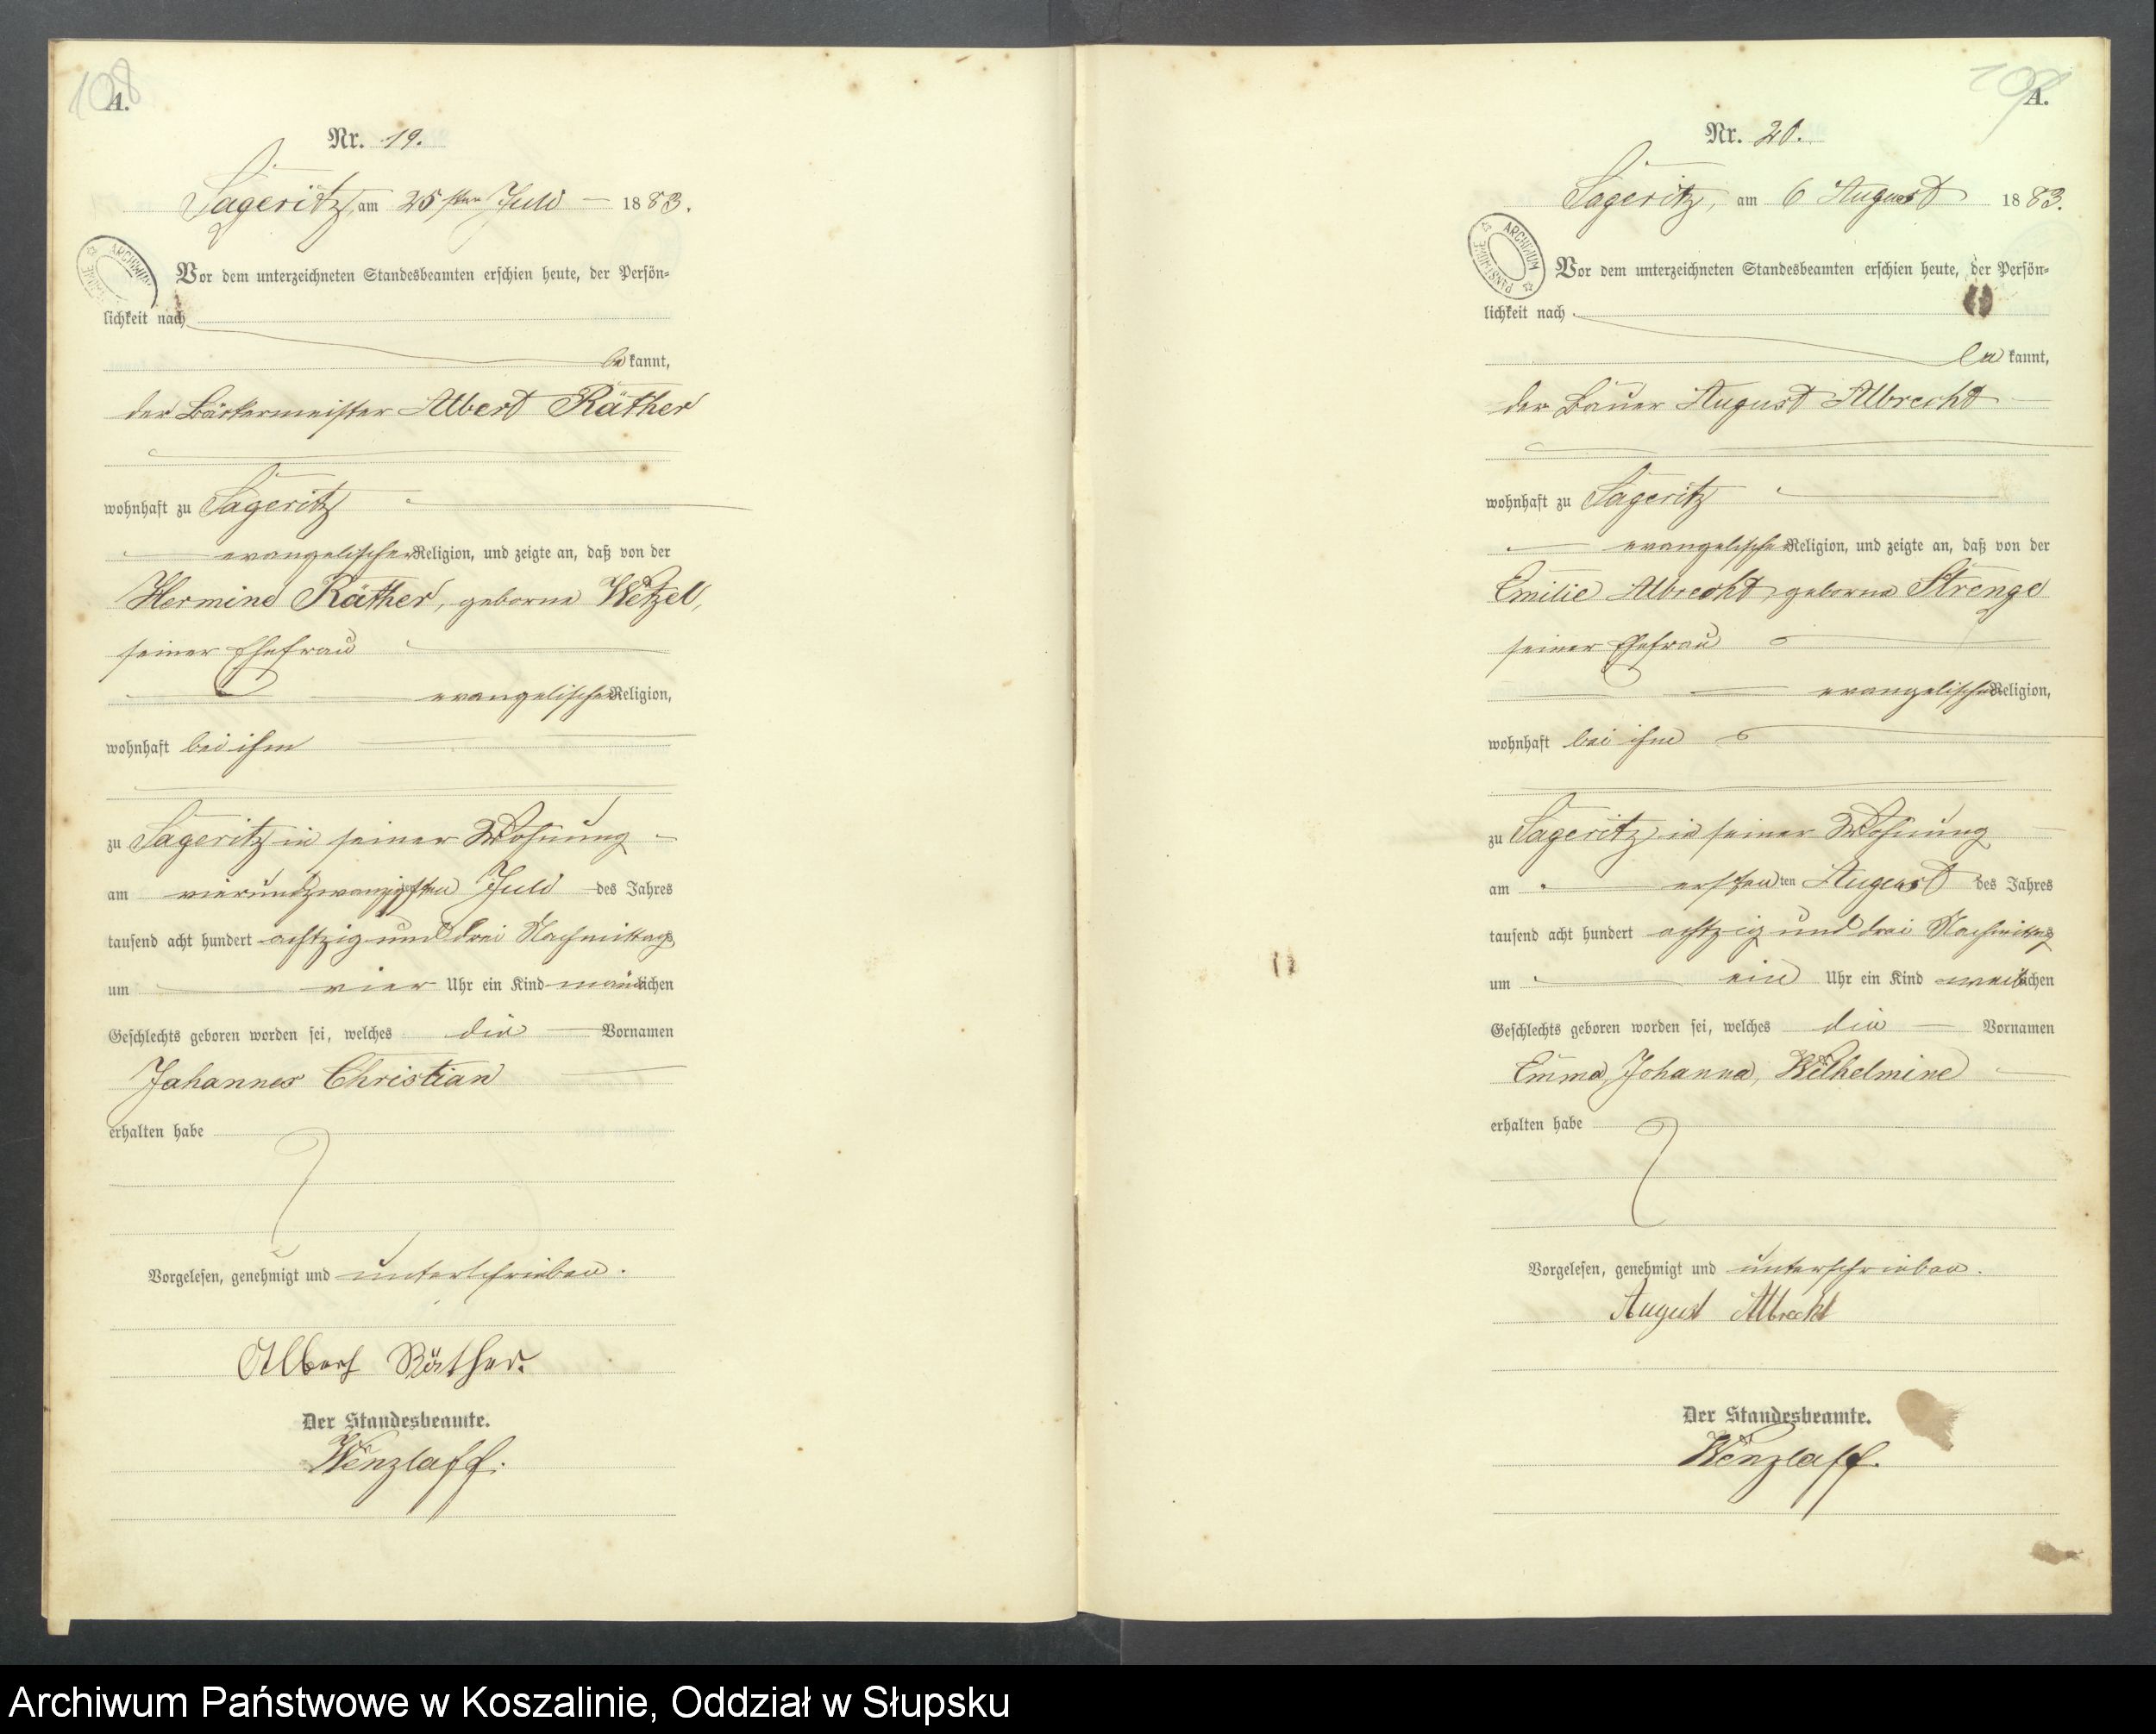 108
A.
Nr. 19.
Sageritz, am 25sten Juli 1883.
ARCHIWUM
Vor dem unterzeichneten Standesbeamten erschien heute, der Persön=
lichkeit nach
bekannt,
der Bäckermeister Albert Räther
wohnhaft zu Sageritz
evangelischer Religion, und zeigte an, daß von der
Hermine Räther, geborne Wetzel,
seiner Ehefrau
evangelischer Religion,
wohnhaft bei ihm
zu Sageritz in seiner Wohnung
am vierundzwanzigsten Juli des Jahres
tausend acht hundert achtzig und drei Nachmittags
um vier Uhr ein Kind männlichen
Geschlechts geboren worden sei, welches die Vornamen
Johannes Christian
erhalten habe
Vorgelesen, genehmigt und unterschrieben.
Albert Räther.
Der Standesbeamte.
Wenzlaff.
109
A.
Nr. 20.
Sageritz, am 6 August 1883.
ARCHIWUM PAŃSTWOWE
Vor dem unterzeichneten Standesbeamten erschien heute, der Persön=
lichkeit nach
bekannt,
der Bauer August Albrecht
wohnhaft zu Sageritz
evangelischer Religion, und zeigte an, daß von der
Emilie Albrecht, geborne Strenge
seiner Ehefrau
evangelischer Religion,
wohnhaft bei ihm
zu Sageritz in seiner Wohnung
am ersten ten August des Jahres
tausend acht hundert achtzig und drei Nachmittags
um ein Uhr ein Kind weiblichen
Geschlechts geboren worden sei, welches die Vornamen
Emma, Johanna, Wilhelmine
erhalten habe
Vorgelesen, genehmigt und unterschrieben.
August Albrecht
Der Standesbeamte.
Wenzlaff.
Archiwum Państwowe w Koszalinie, Oddział w Słupsku